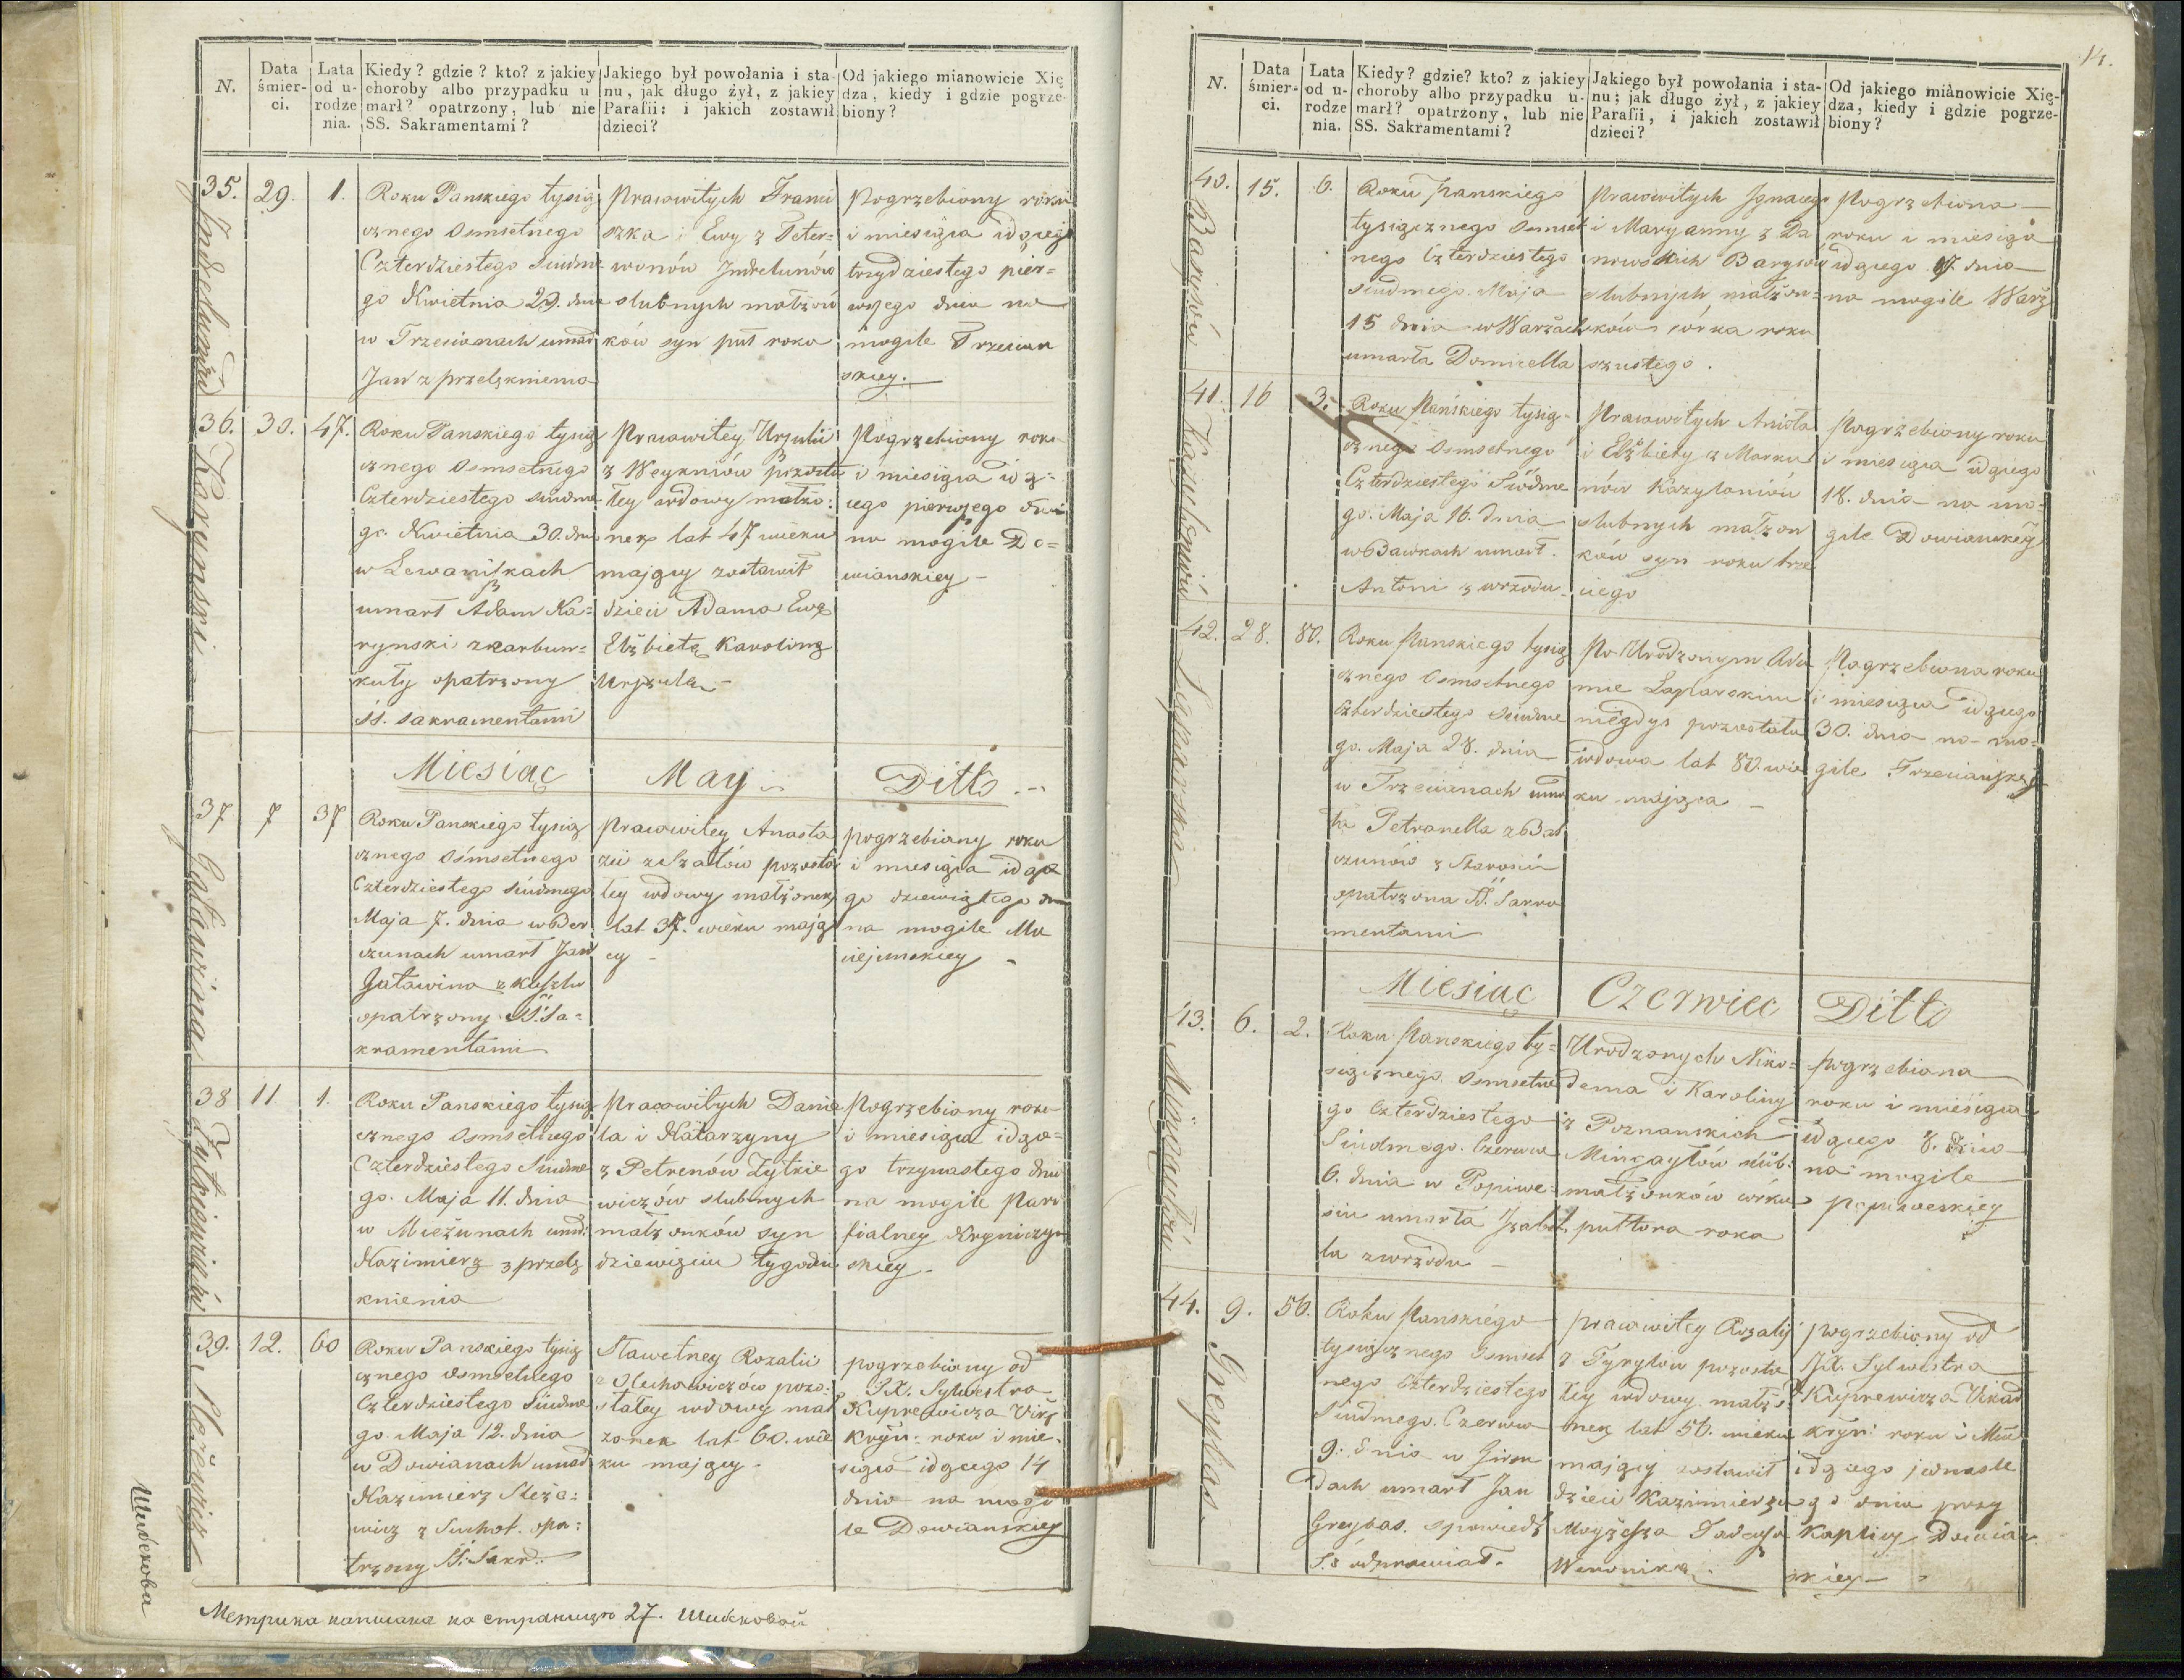 N.
Data śmierci.
Lata od urodzenia.
Kiedy? gdzie? kto? z jakiey
choroby albo przypadku u
marł? opatrzony, lub nie
SS. Sakramentami?
Jakiego był powołania i sta-
nu, jak długo żył, z jakiey
Parafii: i jakich zostawił
dzieci?
Od jakiego mianowicie Xię
dza, kiedy i gdzie pogrze-
biony?
35.
29.
1.
Roku Panskiego tysią
cznego Osmsetnego
Czterdziestego Siudme
go Kwietnia 29. dnia
w Trzecianach umarł
Jan z przelęknienia
Pracowitych Franci
szka i Ewy z Peter=
wonów Jndrelunów
slubnych małżon
ków syn puł roku
Pogrzebiony roku
i miesiąca idącego
trzydziestego pier=
wszego dnia na
mogile Trzecian
skiey.
36.
30.
47.
Karynski
Roku Panskiego tysią
cznego Osmsetnego
Czterdziestego siudme
go. Kwietnia 30. dnia
w Lewaniszkach
umarł Adam Ka=
rynski z karbun=
kuły opatrzony
SS. sakramentami
Pracowitey Urszulii
z Weykniów pozosta
łey wdowy małżo:
nek lat 47 wieku
mający zostawił
dzieci Adama Ewę
Elżbietę Karolinę
Urszulę
Pogrzebiony roku
i miesiąca idą=
cego pierwszego dnia
na mogile Do=
wianskiey
Miesiąc May Ditto
37
7
37
Gatawina
Roku Panskiego tysią
cznego Osmsetnego
Czterdziestego siudmego
Maja 7. dnia w Ber
czunach umarł Jan
Gatawina z kaszlu
opatrzony SS. Sa=
kramentami
Pracowitey Anasta
zii z Szatów pozosta
łey wdowy małżonek
lat 37. wieku mają
cy
pogrzebiony roku
i miesiąca idące
go dziewiątego dnia
na mogile Mu
ciejunskiey
38
11
1.
Żytkiewiczów
Roku Panskiego tysią
cznego Osmsetnego
Czterdziestego Siudme
go. Maja 11. dnia
w Mieżunach umarł
Kazimierz z przelę
knienia
Pracowitych Danie
la i Katarzyny
z Petrenów Żytkie
wiczów slubnych
małżonków syn
dziewięciu tygodni
Pogrzebiony roku
i miesiąca idące=
go trzynastego dnia
na mogile Para
fialney Kryniczyn
skiey
39.
12.
60
Sleżewicz
Roku Panskiego tysią
cznego osmsetnego
Czterdziestego siudme
go. Maja 12. dnia
w Dowianach umarł
Kazimierz Sleża=
wicz z Suchot. opa=
trzony SS: Sakr:
Sławetney Rozalii
z Olechowiczów pozo:
stałey wdowy mał
żonek lat 60. wie
ku mający
pogrzebiony od
JX. Sylwestra
Kuprewicza
Kryń: roku i mie
siąca idącego 14
dnia na mogi
le Dowianskiey
Метрика написана на страницѣ 27. Шидсковой
Шидскова
14.
N.
Data śmierci.
Lata od urodzenia.
Kiedy? gdzie? kto? z jakiey
choroby albo przypadku u-
marł? opatrzony, lub nie
SS. Sakramentami?
Jakiego był powołania i sta-
nu; jak długo żył, z jakiey
Parafii, i jakich zostawił
dzieci?
Od jakiego mianowicie Xię-
dza, kiedy i gdzie pogrze-
biony?
40.
15.
6.
Barysów
Roku Panskiego
tysiącznego Osmset
nego Czterdziestego
siudmego Maja
15 dnia w Warżach
umarła Domicella
Pracowitych Jgnacego
i Maryanny z Da
nowskich Barysów
slubnych małżon=
ków córka roku
szustego.
Pogrzebiona
roku i miesiąca
idącego 17. dnia
na mogile Warż
41.
16
3.
Kazyloniów
Roku Pańskiego tysią=
cznego Osmsetnego
Czterdziestego Siódme
go. Maja 16. dnia
umarł.
Antoni z wrzodu
Pracowitych Anioła
i Elżbiety z Marku
nów Kazyloniów
slubnych małżon
ków syn roku trze
ciego
Pogrzebiony roku
i miesiąca idącego
18. dnia na mo=
gile Dowianskiey
42.
28.
80.
Łaparska
Roku Panskiego tysią
cznego Osmsetnego
Czterdziestego Siudme
go. Maja 28. dnia
w Trzecianach umar
ła Petranella z Bal
czunów z Starosci
opatrzona SS. Sakra
mentami
Po Urodzonym Ada
mie Łaparskim
niegdys pozostała
wdowa lat 80. wie
ku mająca
Pogrzebiona roku
i miesiąca idącego
30. dnia na mo=
gile Trzecianskiey
Miesiąc Czerwiec Ditto
43.
6.
2.
Mingayłów
Roku Panskiego ty=
siącznego Osmsetne
go Czterdziestego
Siudmego. Czerwca
6. dnia w Popiwe=
siu umarła Jzabel
la z wrzodu
Urodzonych Niko=
dema i Karoliny
z Poznanskich
Mingayłów slub:
małżonków córka
pułtora roku
pogrzebiana
roku i miesiąca
idącego 8. dnia
na mogile
popiweskiey
44.
9.
56.
Greybas
Roku Panskiego
tysiącznego Osmset
nego Czterdziestego
Siudmego. Czerwca
9. dnia w Giran
dach umarł Jan
Greybas. spowiedź
S.ą odprawiał.
Pracowitey Rozalij
z Tyrylów pozosta
łey wdowy małżo
nek lat 56. wieku
mający zostawił
dzieci Kazimierza
Moyżesza Tadeusza
Weronikę.
pogrzebiony od
JX. Sylwestra
Kuprewicza Wikar
kryń: roku i Mie
idącego jednaste
go dnia przy
Kaplicy Dowian
skiey